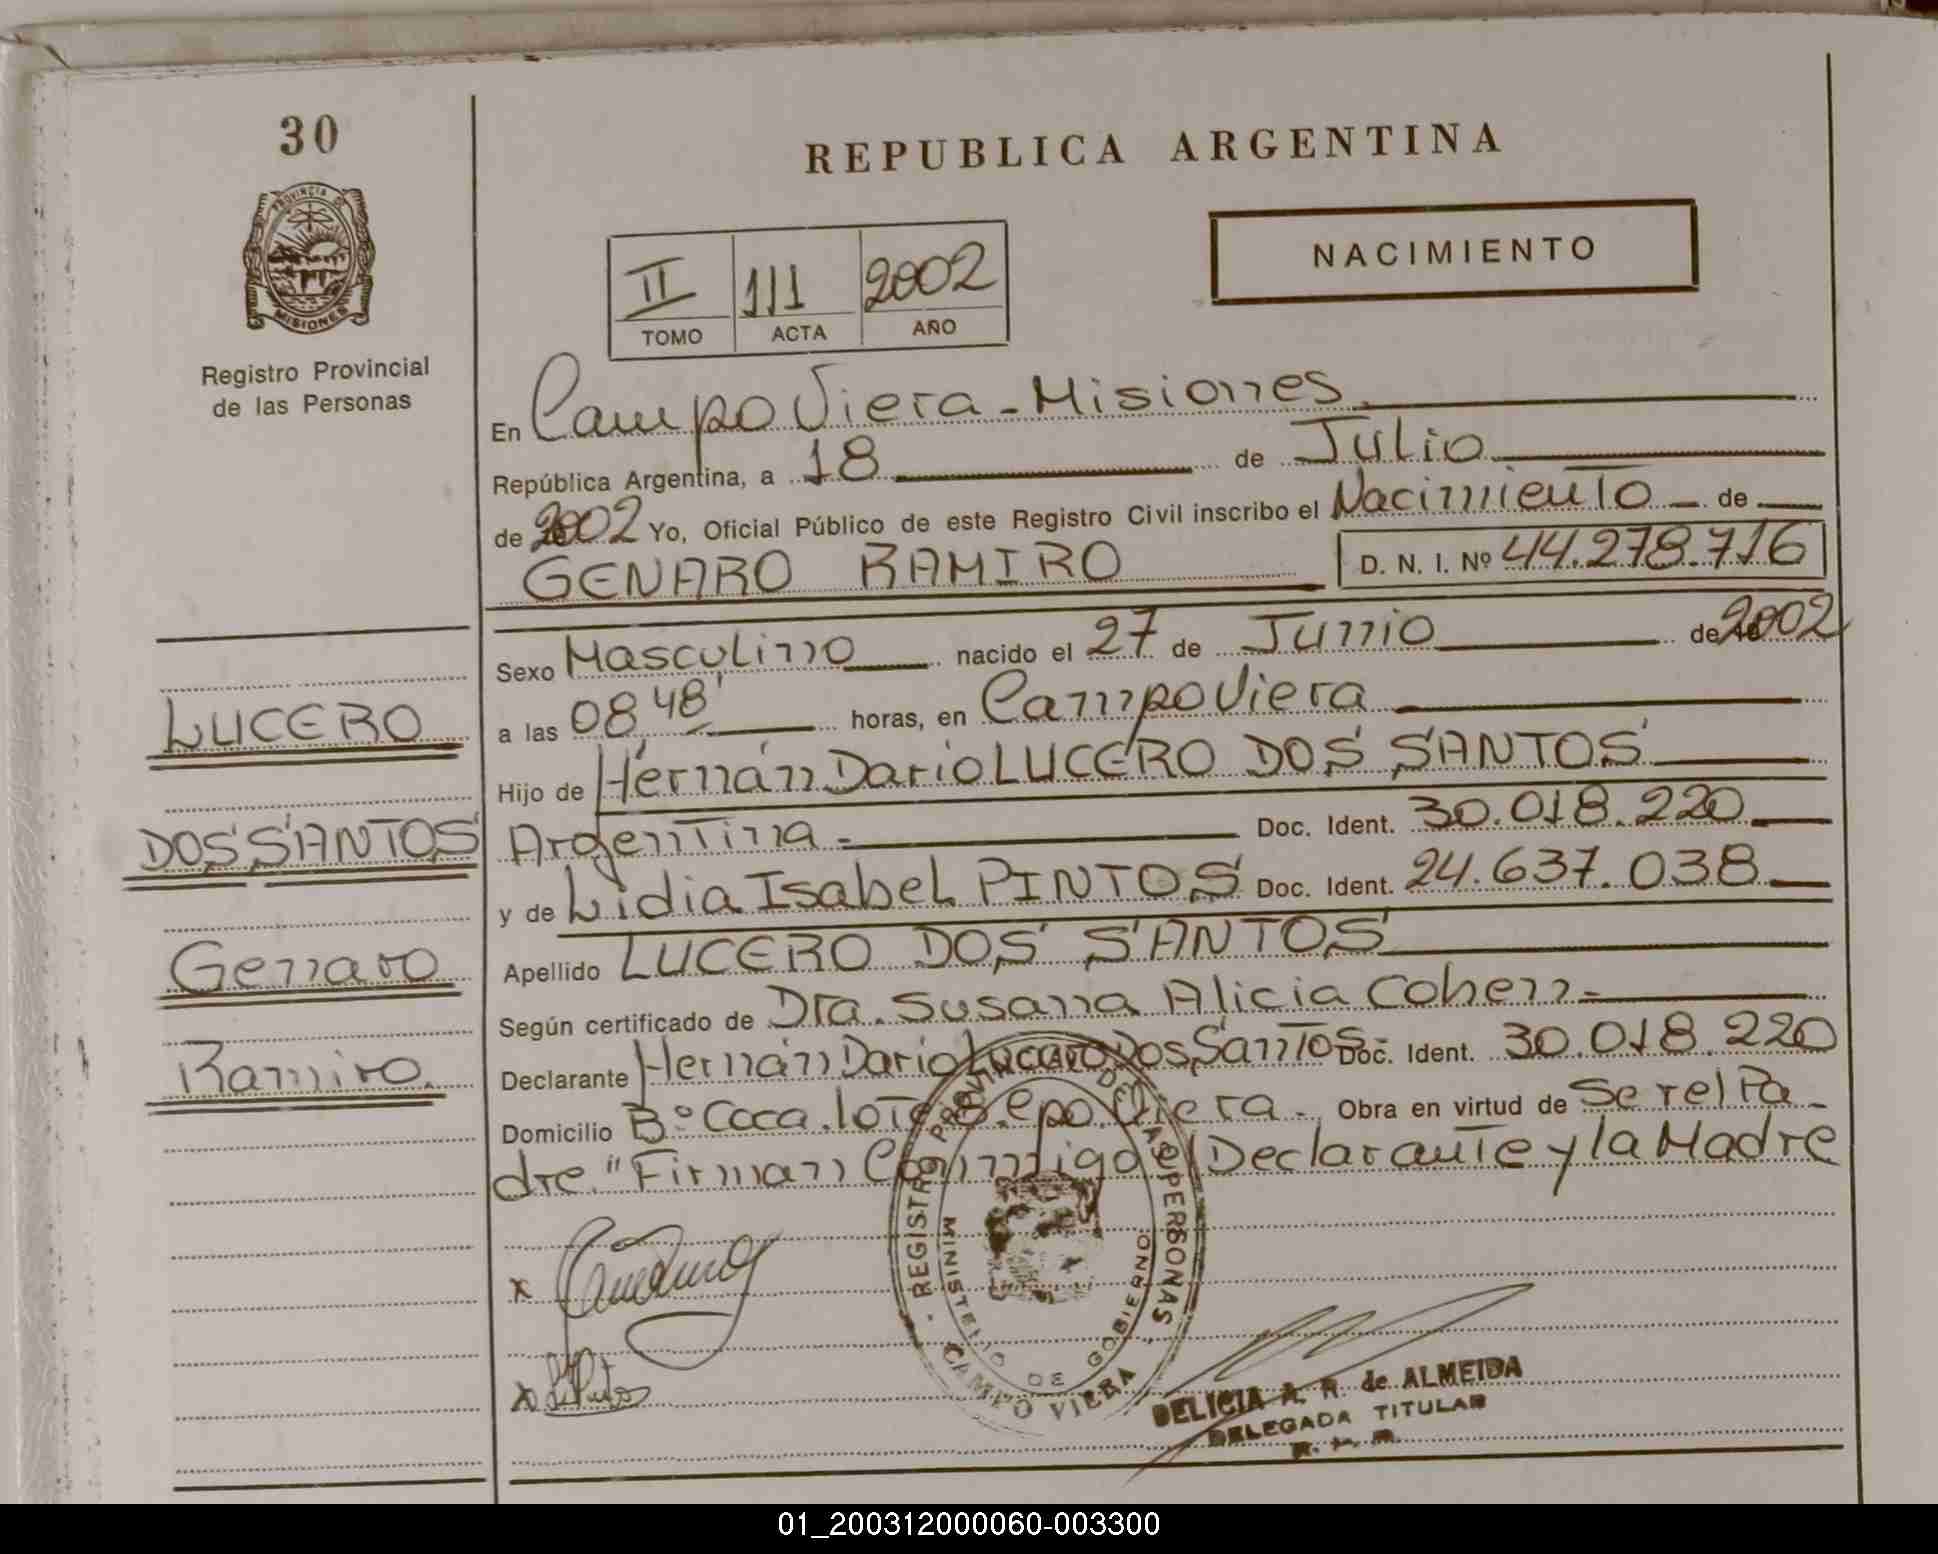 30
PROVINCIA DE
MISIONES
Registro Provincial
de las Personas
REPUBLICA ARGENTINA
NACIMIENTO
II 111 2002
TOMO ACTA AÑO
En Campo Viera - Misiones
República Argentina, a 18 de Julio
de 2002 Yo, Oficial Público de este Registro Civil inscribo el Nacimiento de
GENARO RAMIRO D. N. I. Nº 44.278.716
Sexo Masculino nacido el 27 de Junio de 2002
a las 08 48' horas, en Campo Viera
Hijo de Hernán Dario LUCERO DOS SANTOS
Argentina.- Doc. Ident. 30.018.220
y de Lidia Isabel PINTOS Doc. Ident. 24.637.038
Apellido LUCERO DOS SANTOS
Según certificado de Dra. Susana Alicia Cohen.-
Declarante Hernán Dario Lucero Dos Santos.- Doc. Ident. 30.018.220
Domicilio B° Coca. lote 8. Cpo. Viera. Obra en virtud de Ser el Pa-
dre." Firman Conmigo el Declarante y la Madre
LUCERO
DOS SANTOS
Genaro
Ramiro.
x
x
REGISTRO PROVINCIAL DE LAS PERSONAS
MINISTERIO DE GOBIERNO
CAMPO VIERA
DELICIA A. R. de ALMEIDA
DELEGADA TITULAR
01_200312000060-003300